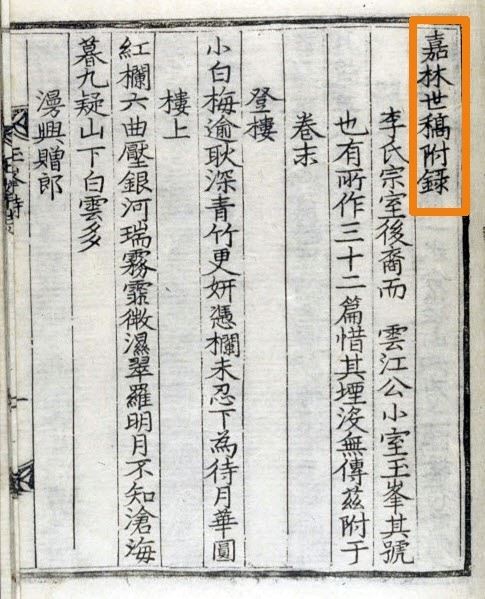 嘉林世稿附録
李氏宗室後裔而　雲江公小室玉峯其號
也有所作三十二篇惜其堙没無傳兹附于
卷末
登樓
小白梅逾耿深青竹更妍憑欄未忍下為待月華圓
樓上
紅欄六曲壓銀河瑞霧霏微濕翠羅明月不知滄海
暮九疑山下白雲多
漫興贈郎